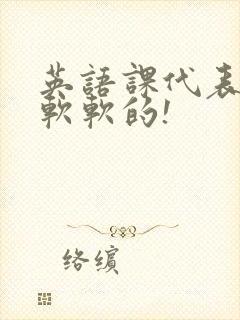 英語課代表
軟軟的!
络缤